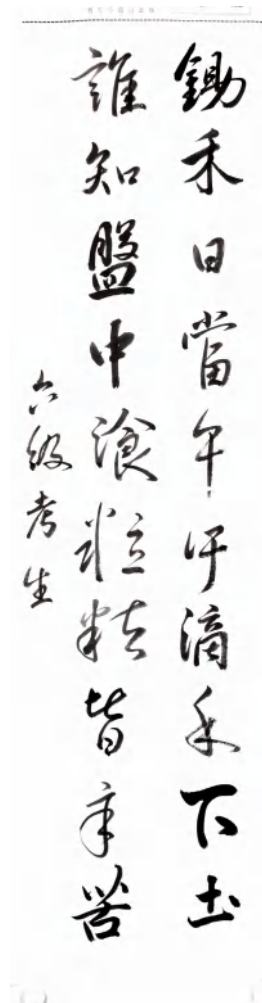 鋤禾日當午汗滴禾下土
誰知盤中飡粒粒皆辛苦
六级考生